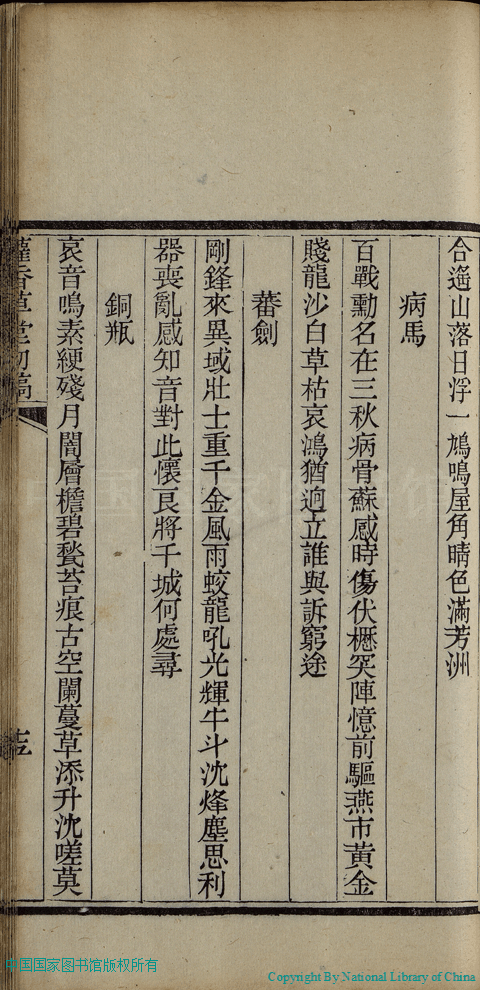 合遙山落日浮一鳩鳴屋角晴色滿芳洲
病馬
百戰勳名在三秋病骨蘇感時傷伏櫪突陣憶前驅燕市黃金
賤龍沙白草枯哀鴻猶迥立誰與訴窮途
蕃劍
剛鋒來異域壯士重千金風雨蛟龍吼光輝牛斗沈烽塵思利
器喪亂感知音對此懷良將千城何處尋
銅瓶
哀音鳴素綆殘月闇層檐碧甃苔痕古空闌蔓草添升沈嗟莫
香草堂初稿
中国国家图书馆版权所有
Copyright By National Library of China